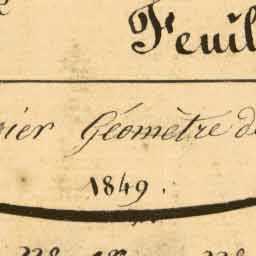 Feuil
nier Géomètre de
1849.